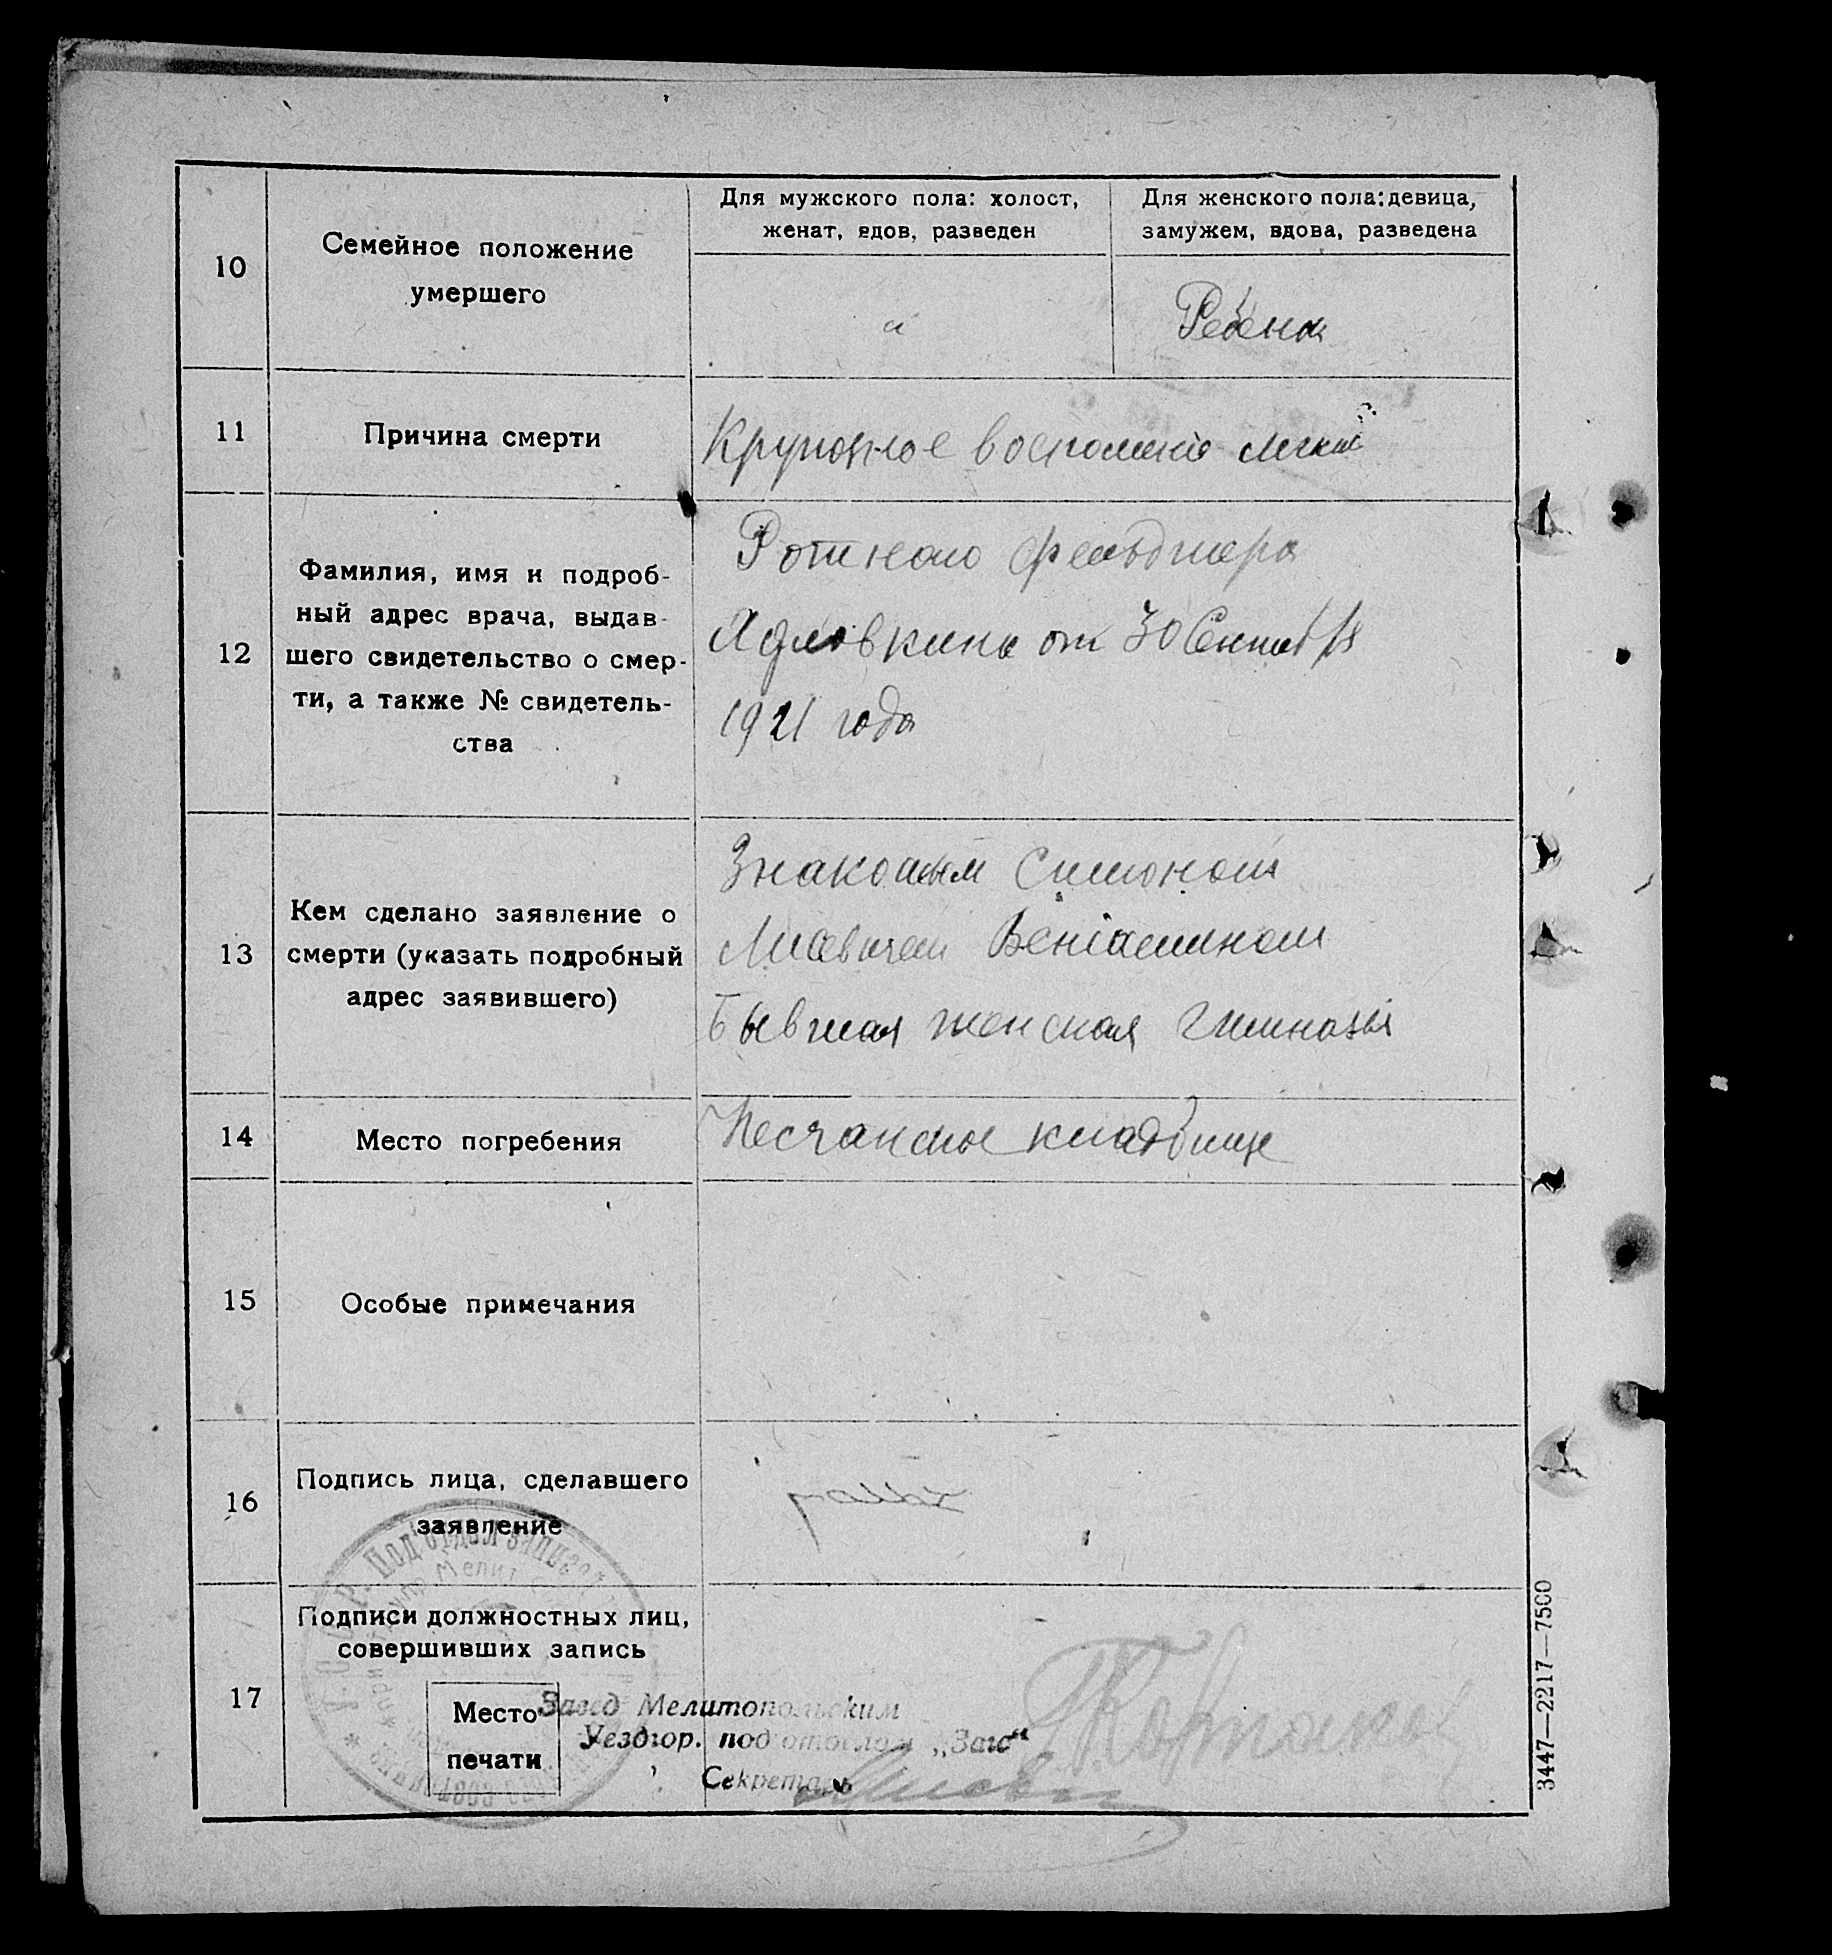 10
Семейное положение
умершего
Для мужского пола: холост,
женат, вдов, разведен
Для женского пола: девица,
замужем, вдова, разведена
Ребенок
11
Причина смерти
Крупозное воспаление легких
12
Фамилия, имя и подроб-
ный адрес врача, выдав-
шего свидетельство о смер-
ти, а также № свидетель-
ства
Ротного фельдшера
от 30 Сентября
1921 года
13
Кем сделано заявление о
смерти (указать подробный
адрес заявившего)
Знакомым Симоном
Веніамином
Бывшая женская гимназія
14
Место погребения
Песчанское кладбище
15
Особые примечания
16
Подпись лица, сделавшего
заявление
17
Подписи должностных лиц,
совершивших запись
Место
печати
Завед Мелитопольским
Уездгор. подотделом „Загс“
Секретарь
3447—2217—7500